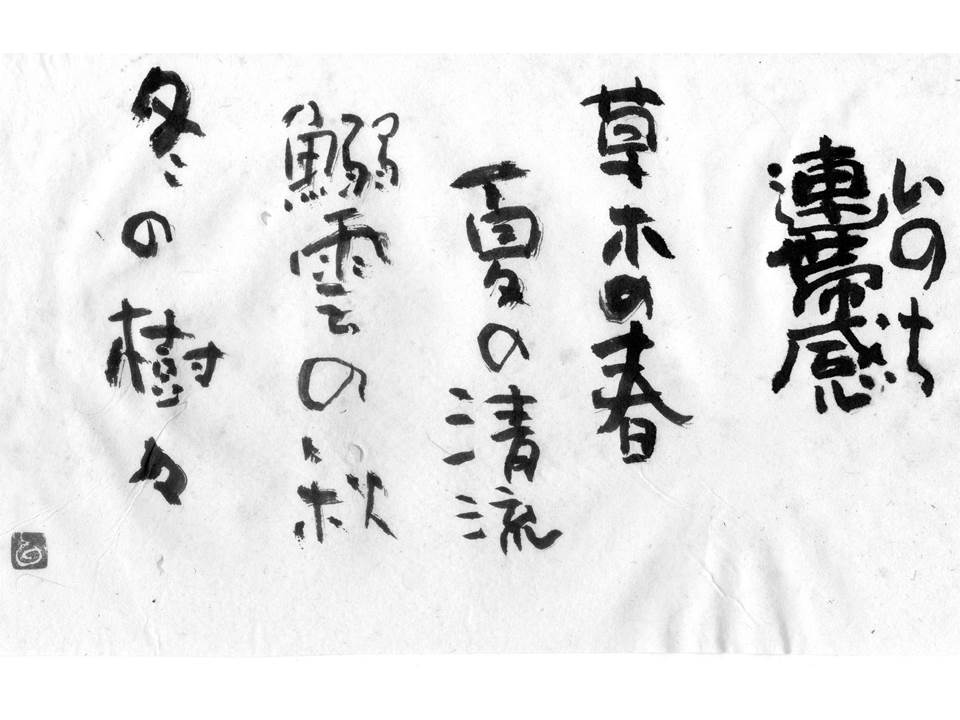 いのち
連帯感
草木の春
夏の清流
鰯雲の秋
冬の樹々